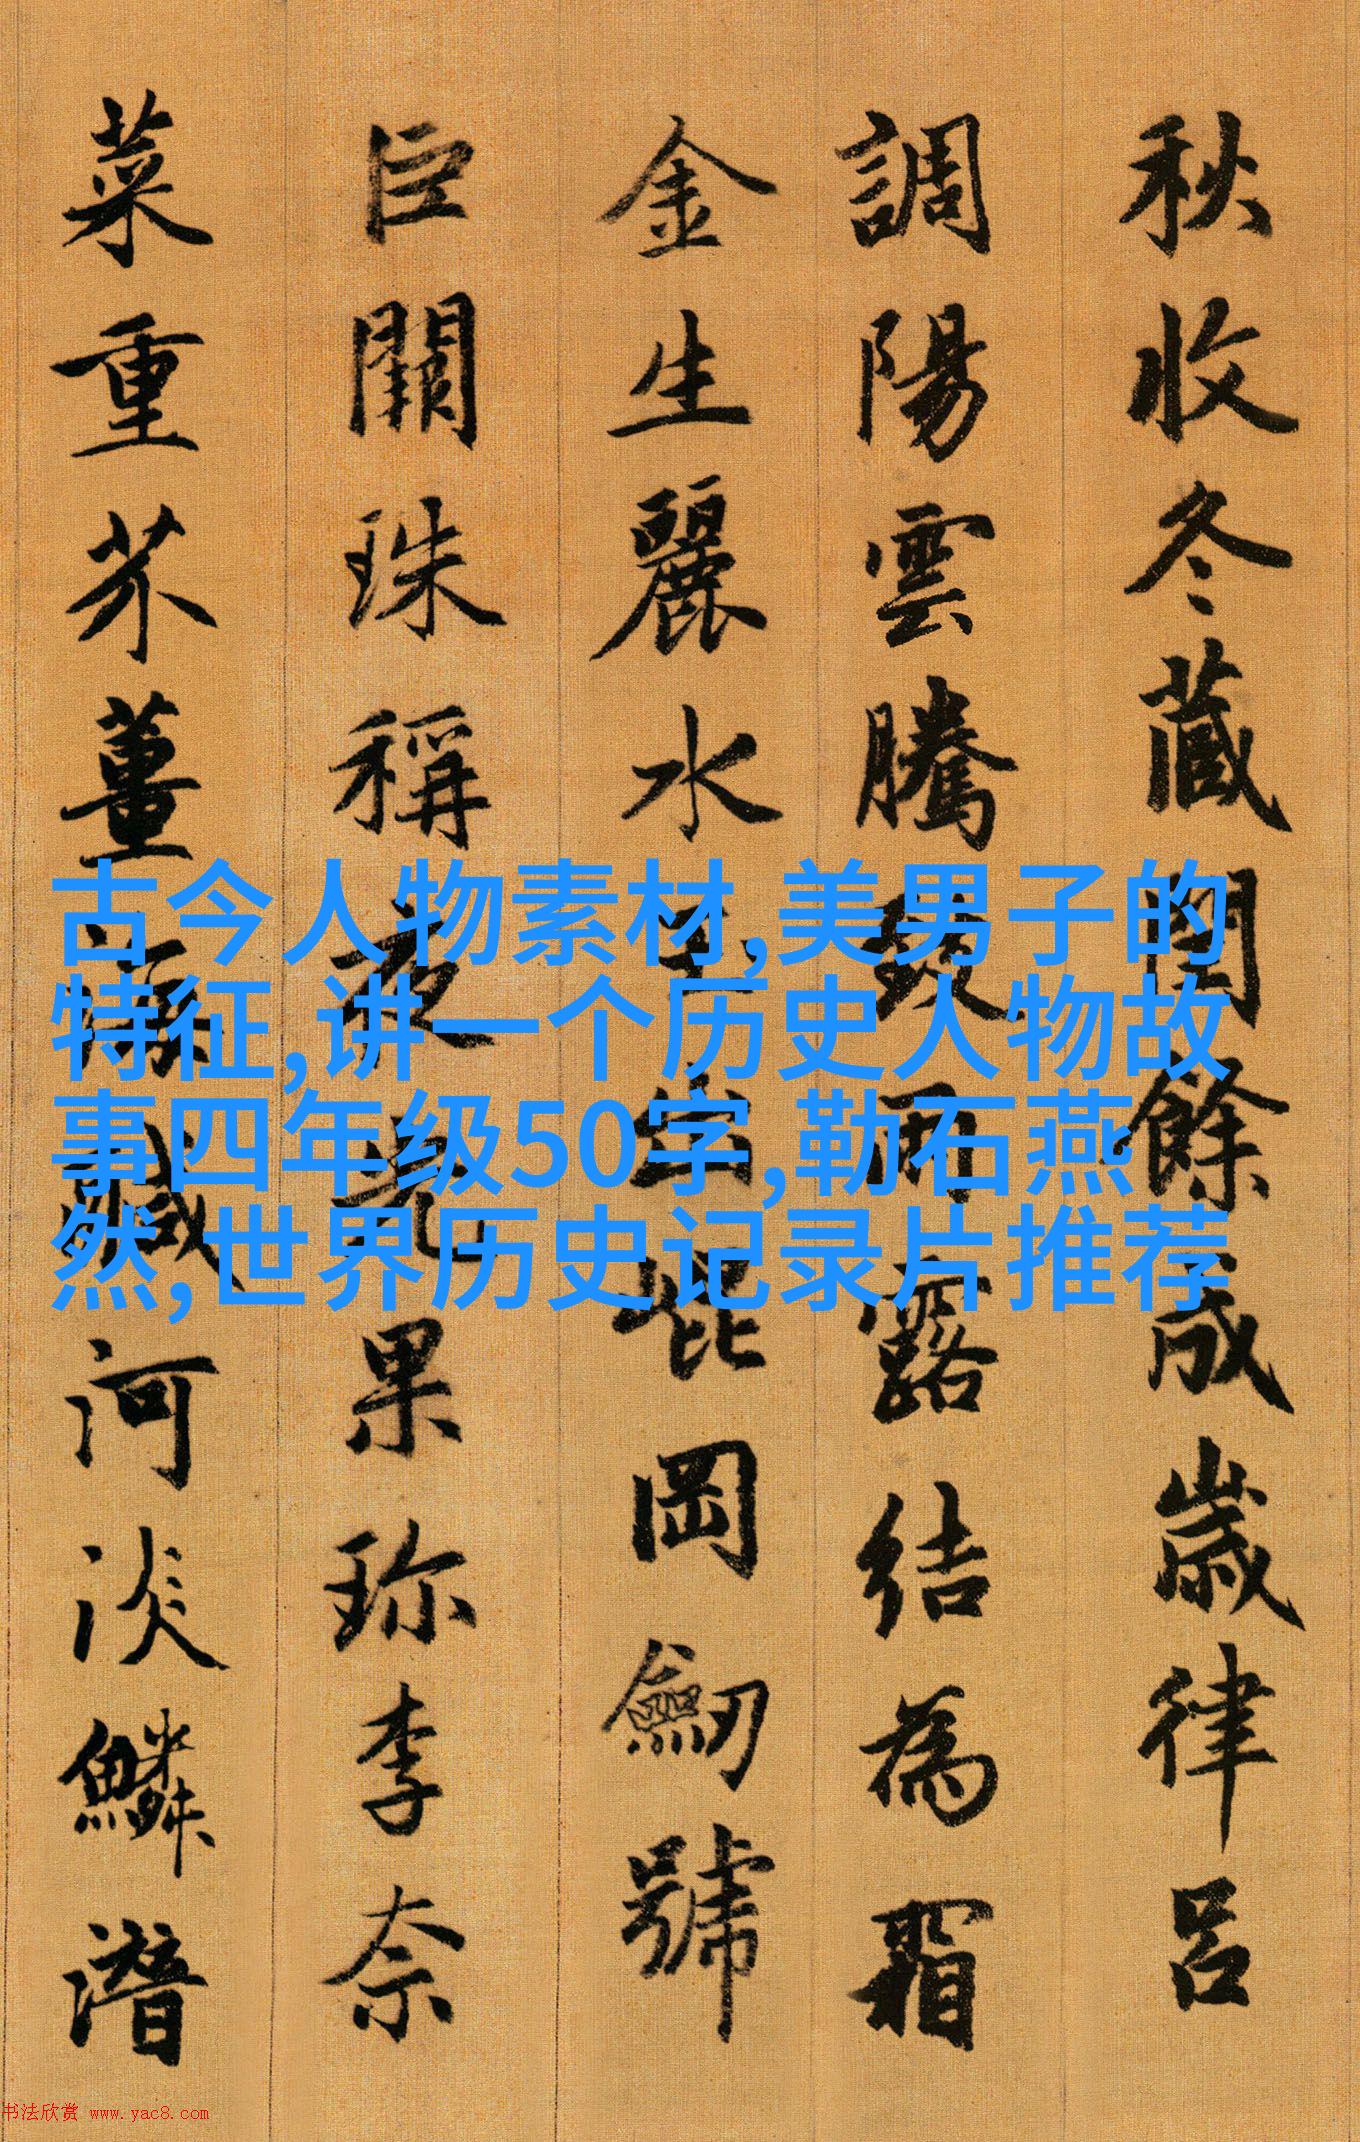 秋收冬藏閏餘成歲律呂
調陽雲騰致雨露結為霜
金生麗水玉出崐岡劒號
巨闕珠稱夜光果珎李柰
菜重芥薑海醎河淡鱗潛
古今人物素材,美男子的
特征,讲一个历史人物故
事四年级50字,勒石燕
然,世界历史记录片推荐
书法欣赏 www.yac8.com